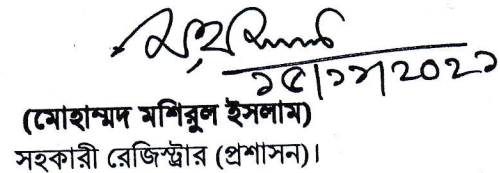 ১৫/১১/২০২১
(মোহাম্মদ মশিরুল ইসলাম)
সহকারী রেজিস্ট্রার (প্রশাসন)।